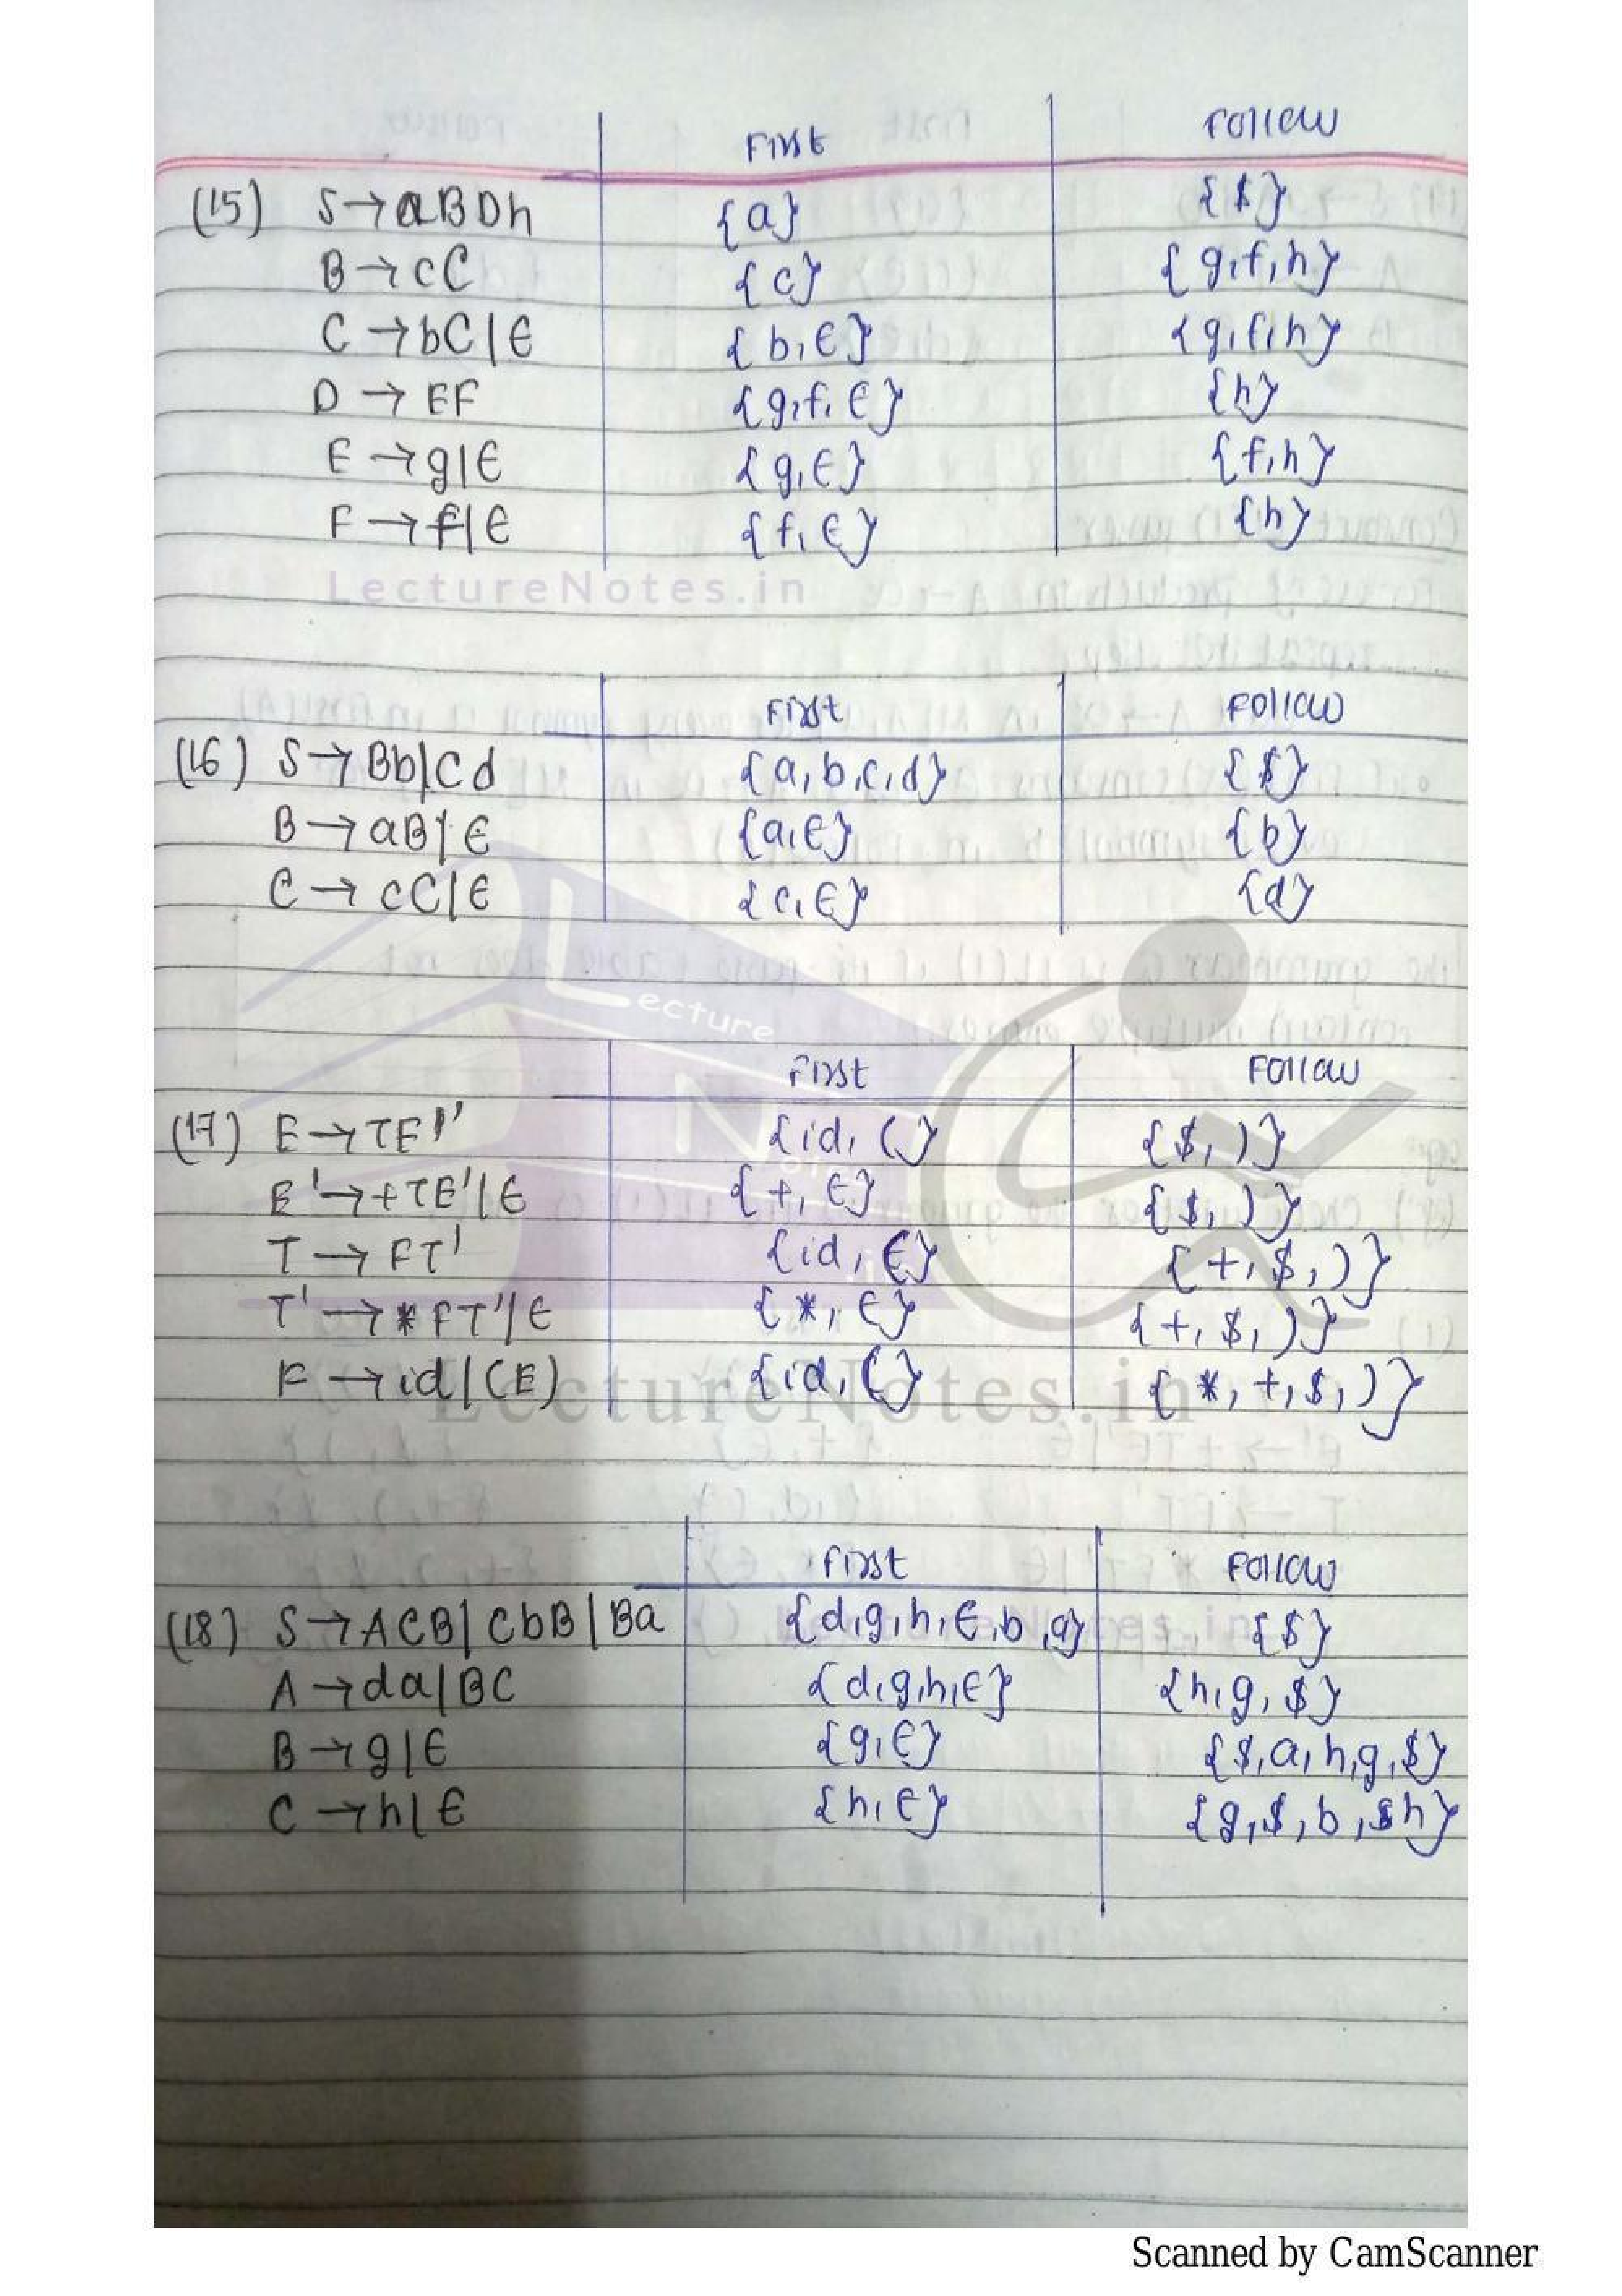 First Follow
(15) S→aBDh {a} {$}
B→cC {c} {g,f,h}
C→bC|ϵ {b,ϵ} {g,f,h}
D→EF {g,f,ϵ} {h}
E→g|ϵ {g,ϵ} {f,h}
F→f|ϵ {f,ϵ} {h}
LectureNotes.in
First Follow
(16) S→Bb|Cd {a,b,c,d} {$}
B→aB|ϵ {a,ϵ} {b}
C→cC|ϵ {c,ϵ} {d}
Lecture
Notes
First Follow
(17) E→TE' {id, (} {$, )}
E'→+TE'|ϵ {+, ϵ} {$, )}
T→FT' {id, ϵ} {+,$,)}
T'→*FT'|ϵ {*, ϵ} {+,$,)}
F→id|(E) {id,(} {*,+,$,)}
LectureNotes.in
First Follow
(18) S→ACB|CbB|Ba {d,g,h,ϵ,b,a} {$}
A→da|BC {d,g,h,ϵ} {h,g,$}
B→g|ϵ {g,ϵ} {$,a,h,g,$}
C→h|ϵ {h,ϵ} {g,$,b,h}
Scanned by CamScanner